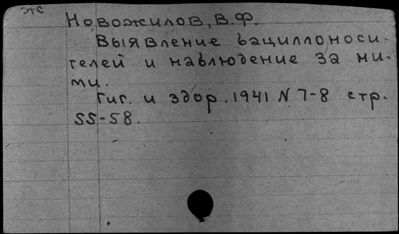 жс
Новожилов, В.Ф.
Выявление бациллоноси-
телей и наблюдение за ни-
ми.
Гиг. и здор. 1941 N 7-8 стр.
55-58.